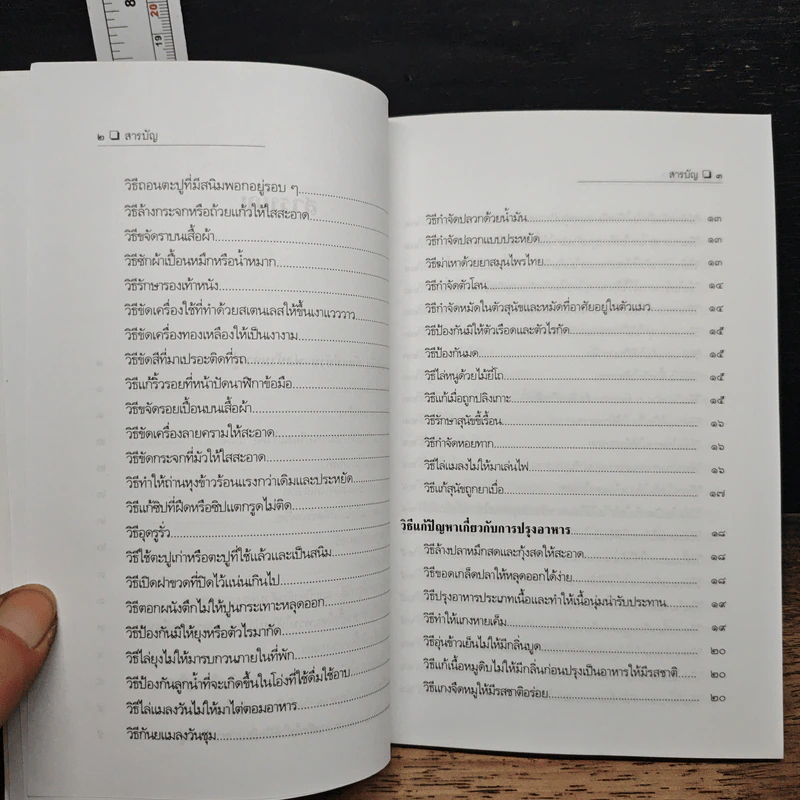 8
20
19
๒ ❏ สารบัญ
วิธีถอนตะปูที่มีสนิมพอกอยู่รอบ ๆ
วิธีล้างกระจกหรือถ้วยแก้วให้ใสสะอาด
วิธีขจัดราบนเสื้อผ้า
วิธีซักผ้าเปื้อนหมึกหรือน้ำหมาก
วิธีรักษารองเท้าหนัง
วิธีขัดเครื่องใช้ที่ทำด้วยสเตนเลสให้ขึ้นเงาแวววาว
วิธีขัดเครื่องทองเหลืองให้เป็นเงางาม
วิธีขัดสีที่มาเปรอะติดที่รถ
วิธีแก้ริ้วรอยที่หน้าปัดนาฬิกาข้อมือ
วิธีขจัดรอยเปื้อนบนเสื้อผ้า
วิธีขัดเครื่องลายครามให้สะอาด
วิธีขัดกระจกที่มัวให้ใสสะอาด
วิธีทำให้ถ่านหุงข้าวร้อนแรงกว่าเดิมและประหยัด
วิธีแก้ซิปที่ฝืดหรือซิปแตกรูดไม่ติด
วิธีอุดรูรั่ว
วิธีใช้ตะปูเก่าหรือตะปูที่ใช้แล้วและเป็นสนิม
วิธีเปิดฝาขวดที่ปิดไว้แน่นเกินไป
วิธีตอกผนังตึกไม่ให้ปูนกระเทาะหลุดออก
วิธีป้องกันมิให้ยุงหรือตัวไรมากัด
วิธีไล่ยุงไม่ให้มารบกวนภายในที่พัก
วิธีป้องกันลูกน้ำที่จะเกิดขึ้นในโอ่งที่ใช้ดื่มใช้อาบ
วิธีไล่แมลงวันไม่ให้มาไต่ตอมอาหาร
วิธีกันแมลงวันชุม
สารบัญ ❏ ๓
วิธีกำจัดปลวกด้วยน้ำมัน ๑๓
วิธีกำจัดปลวกแบบประหยัด ๑๓
วิธีฆ่าเหาด้วยยาสมุนไพรไทย ๑๓
วิธีกำจัดตัวโลน ๑๔
วิธีกำจัดหมัดในตัวสุนัขและหมัดที่อาศัยอยู่ในตัวแมว ๑๔
วิธีป้องกันมิให้ตัวเรือดและตัวไรกัด ๑๕
วิธีป้องกันมด ๑๕
วิธีไล่หนูด้วยไม้ยี่โถ ๑๕
วิธีแก้เมื่อถูกปลิงเกาะ ๑๕
วิธีรักษาสุนัขขี้เรื้อน ๑๖
วิธีกำจัดหอยทาก ๑๖
วิธีไล่แมลงไม่ให้มาเล่นไฟ ๑๖
วิธีแก้สุนัขถูกยาเบื่อ ๑๗
วิธีแก้ปัญหาเกี่ยวกับการปรุงอาหาร ๑๘
วิธีล้างปลาหมึกสดและกุ้งสดให้สะอาด ๑๘
วิธีขอดเกล็ดปลาให้หลุดออกได้ง่าย ๑๘
วิธีปรุงอาหารประเภทเนื้อและทำให้เนื้อนุ่มน่ารับประทาน ๑๙
วิธีทำให้แกงหายเค็ม ๑๙
วิธีอุ่นข้าวเย็นไม่ให้มีกลิ่นบูด ๒๐
วิธีแก้เนื้อหมูดิบไม่ให้มีกลิ่นก่อนปรุงเป็นอาหารให้มีรสชาติ ๒๐
วิธีแกงจืดหมูให้มีรสชาติอร่อย ๒๐